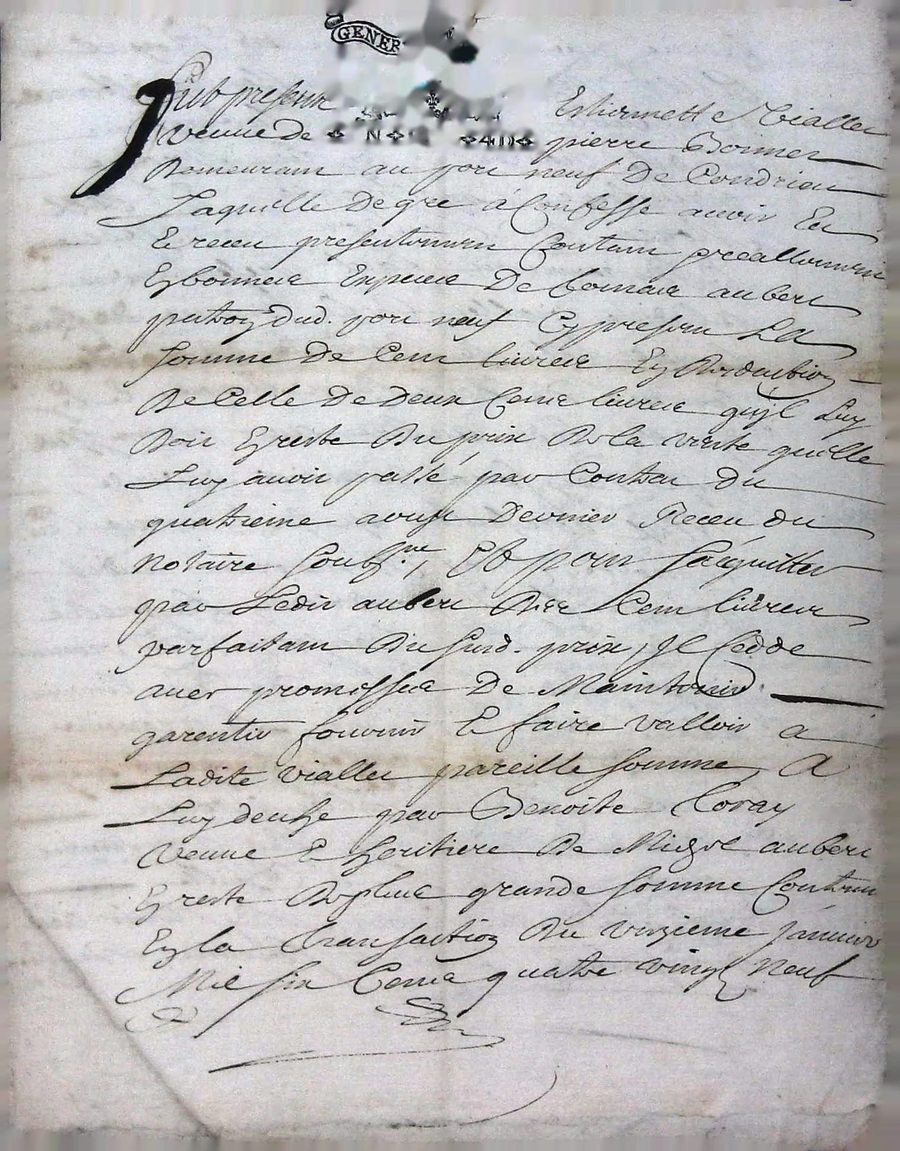 GENER
Fut presente Estiennette Viallet
veuve de pierre Bonnet
Demeurant au port neuf De Condrieu
Laquelle De gré a Confessé avoir Eu
Et receu presentement Contant preallement
Et bonnes Especes De aubert
patron dud. port neuf Cy present La
somme De Cent livres En Deduction
De Celle De Deux Cens livres quil Luy
Doit De reste Du prix De la vente quelle
Luy avoit passé par Contrat du
quatrieme aoust Dernier Receu du
Notaire soubs.ne, Et pour sacquitter
par Ledit aubert Des Cent livres
parfaisant Du surd. prix, Il Cedde
avec promesses De Maintenir
garentir fournir Et faire valloir a
Ladite Viallet pareille somme A
Luy deuhe par Benoite Coray
veuve Et heritiere De aubert
De reste De plus grande somme Contenue
En la Transaction Du janvier
Mil six Cens quatre vingt Neuf